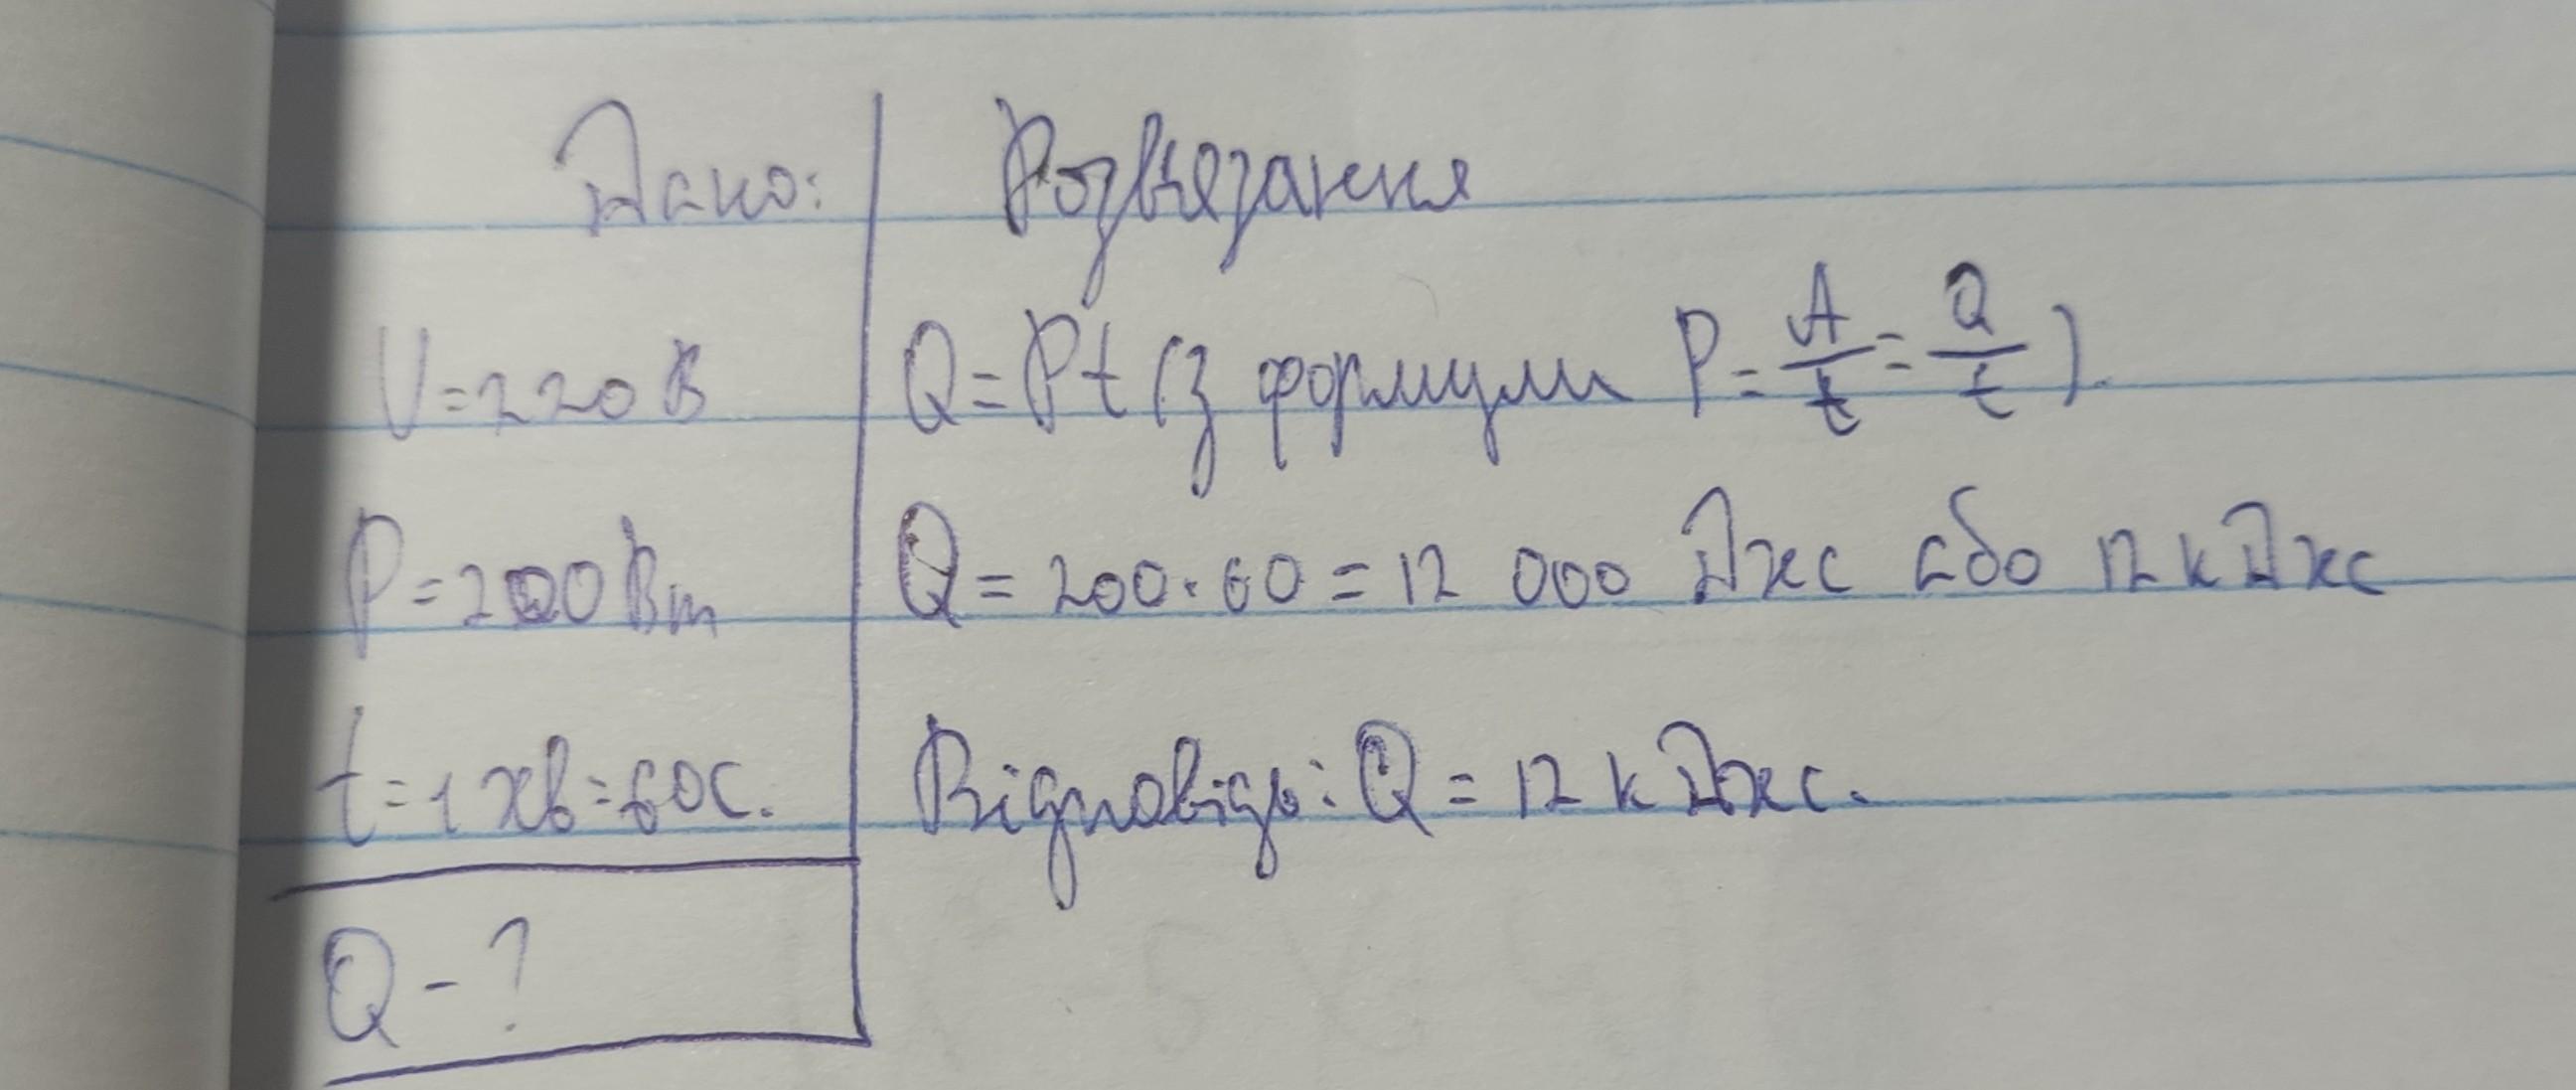 Дано:
U=220В
P=200Вт
t=1хв=60с.
Q-?
Розв'язання
Q=Pt (з формули P=A/t=Q/t).
Q=200·60=12 000 Дж або 12 кДж
Відповідь: Q=12 кДж.